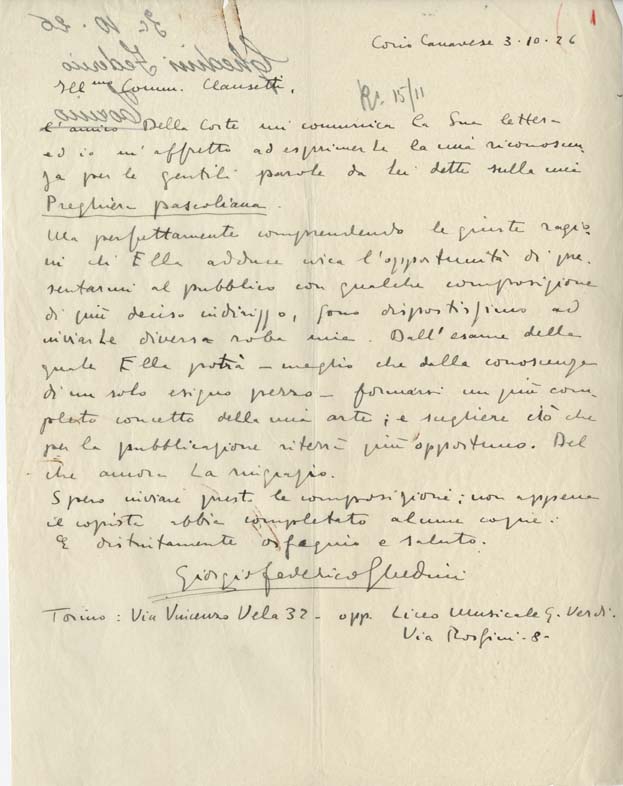 Corio Canavese 3-10-26
Ill.mo Comm. Clausetti,
R. 15/11
l'amico Della Corte mi comunica la Sua lettera
ed io m'affretto ad esprimerLe la mia riconoscen-
za per le gentili parole da Lei dette sulla mia
Preghiera pascoliana.
Ma perfettamente comprendendo le giuste ragio-
ni ch'Ella adduce circa l'opportunità di pre-
sentarmi al pubblico con qualche composizione
di più deciso indirizzo, sono dispostissimo ad
inviarLe diversa roba mia. Dall'esame della
quale Ella potrà - meglio che dalla conoscenza
di un solo esiguo pezzo - formarsi un più com-
pleto concetto della mia arte; e scegliere ciò che
per la pubblicazione riterrà più opportuno. Del
che ancora La ringrazio.
Spero inviare presto le composizioni; non appena
il copista abbia completato alcune copie.
E distintamente ossequio e saluto.
Giorgio Federico Ghedini
Torino: Via Vincenzo Vela 32 - opp. Liceo Musicale G. Verdi.
Via Rossini - 8 -